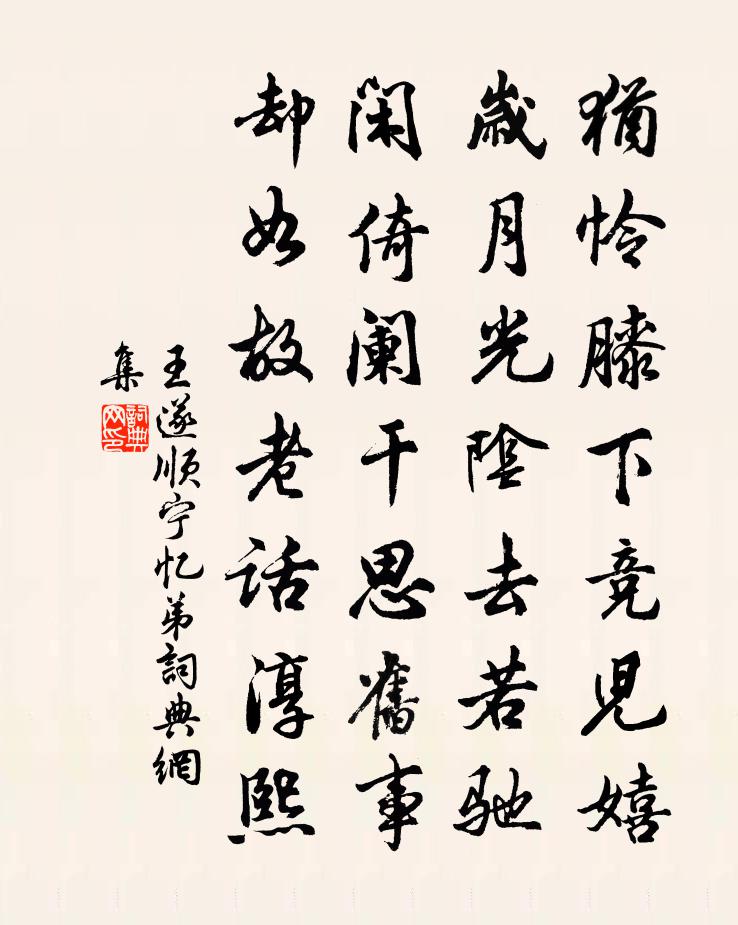 猶怜膝下竞兒嬉
歲月光陰去若馳
闲倚阑干思舊事
却如故老话淳熙
王遂顺宁忆弟詞典網
集
詞典
网印